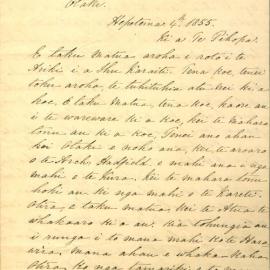 Otaki.
Hepetema 4th 1855.
Ki a Te Pihopa.
E taku matua aroha e roto i te
Ariki i a Ihu Karaiti. Tena koe, tenei
toku aroha, te tuhituhia atu nei ki a
koe. E taku matua, tena koe, kaore au
i te wareware ki a koe, kei te mahara
tonu au ki a koe, Tenei ano ahau
kei Otaki e noho ana, kei te aroaro
o te Arch. Hadfield e mahi ana i nga
mahi o te kura. Kei te mahara tonu
hoki au ki nga mahi o te Kareti.
Otira, e taku matua kei te Atua te
whakaaro ki a au. Kia tohungia au
i runga i to mana mahi
Mana ahau e whaka
Otira, ko nga tamariki